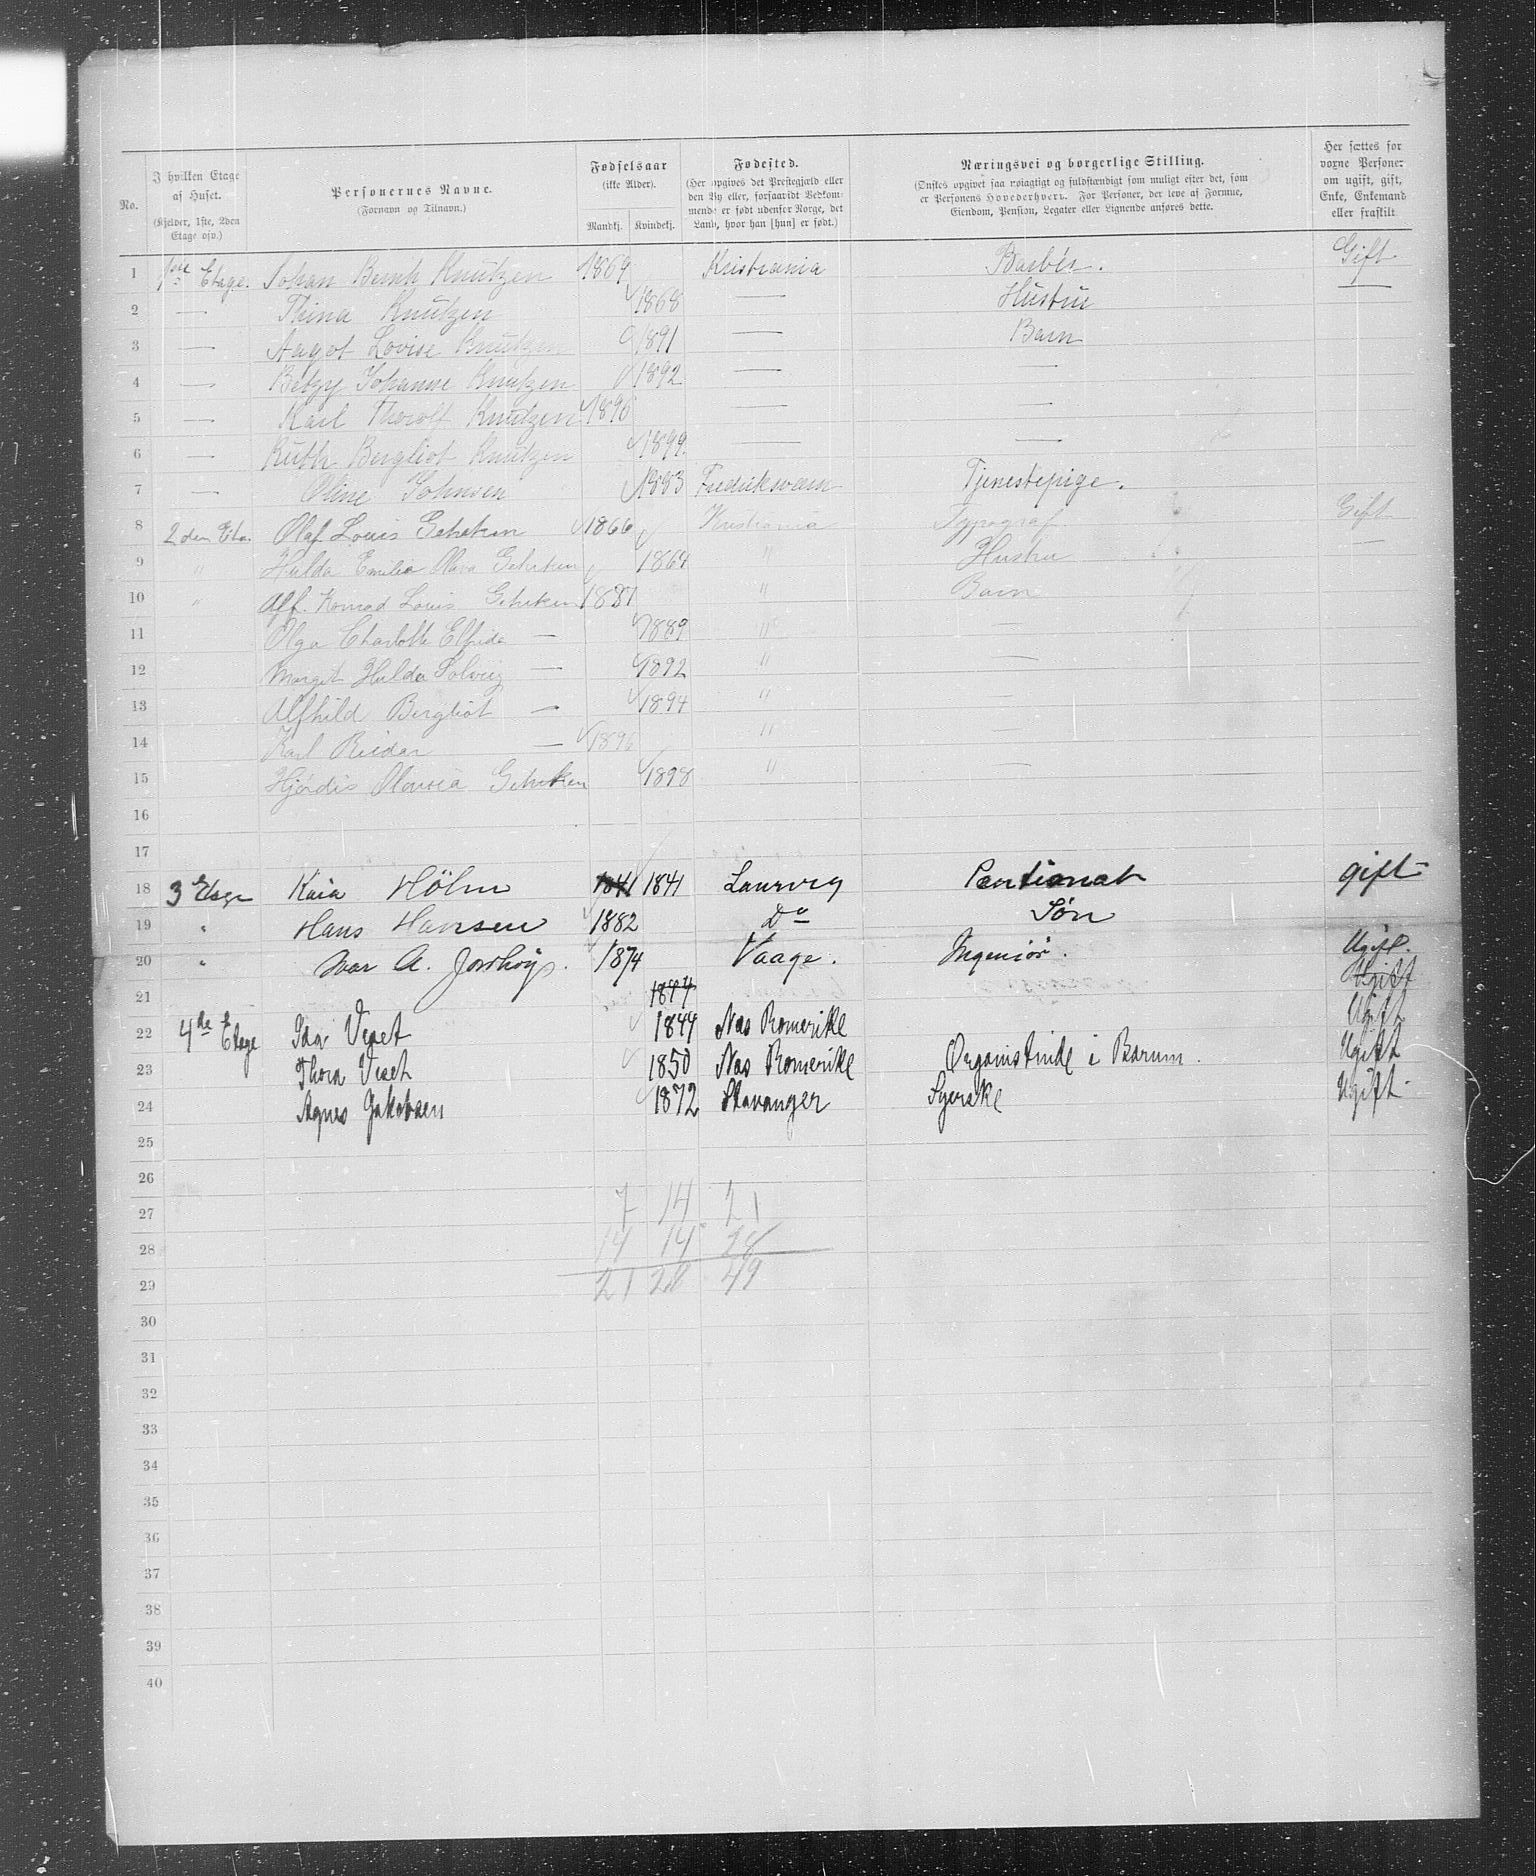 No. | I hvilken Etage af Huset. (Kjelder, 1ste, 2den Etage osv.) | Personernes Navne. (Fornavn og Tilnavn.) | Fødselsaar (ikke Alder). Mandkj. Kvindekj. | Fødested. (Her opgives det Prestegjæld eller den By eller, forsaavidt Vedkommende er født udenfor Norge, det Land, hvor han [hun] er født.) | Næringsvei og borgerlige Stilling. (Ønskes opgivet saa nøiagtigt og fuldstændigt som muligt efter det, som er Personens Hovederhverv. For Personer, der leve af Formue, Eiendom, Pension, Legater eller Lignende anføres dette. | Her sættes for voxne Personer om ugift, gift, Enke, Enkemand eller fraskilt
1 1ste Etage. Johan Bernh Knutzen 1869 Kristiania Barbér. Gift
2 — Thina Knutzen 1868 — Hustru —
3 — Aagot Lovise Knutzen 1891 — Barn
4 — Betzy Johanne Knutzen 1892 — —
5 — Karl Thorolf Knutzen 1896 — —
6 — Ruth Bergliot Knutzen 1899. — —
7 — Oline Johnsen 1883 Fredriksværn Tjenestepige.
8 2den Eta. Olaf Louis Gehrken 1866 Kristiania Typograf Gift
9 " Hulda Emilie Olava Gehrken 1864 " Hustru —
10 " Alf. Konrad Louis Gehrken 1887 " Barn
11 Olga Charlotte Elfrida — 1889 " —
12 Margit Hulda Solveig — 1892 " —
13 Alfhild Bergliot — 1894 " —
14 Karl Reidar — 1896 " —
15 Hjørdis Olovia Gehrken 1898 " —
16
17
18 3 Etage Kaia Hölm 1841 1841 Laurvig Pentionat gift
19 " Hans Hansen 1882 Do Søn
20 " Ivar A. 1874 Vaage. Ingeniør. Ugift.
21 1844 Ugift
22 4de Etage Ida Veset 1844 Nas Romerike Ugift
23 Thora Veset 1850 Nas Romerike Organistinde i Barum. Ugift
24 Agnes Jakobsen 1872 Stavanger Syerske Ugift
25
26
27 7 14 21
28 14 14 28
29 21 28 49
30
31
32
33
34
35
36
37
38
39
40